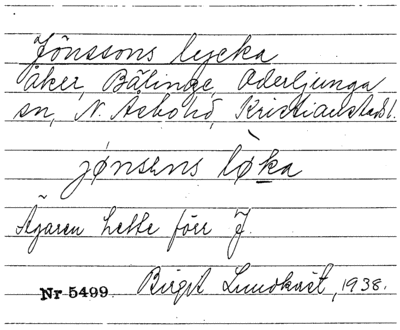 Jönssons lycka
åker, Bälinge, Oderljunga
sn, N. Åsbohd, Kristianstads l.
jønsens løka
Ägaren hette förr J.
Nr 5499. Birgit Lundkvist, 1938.